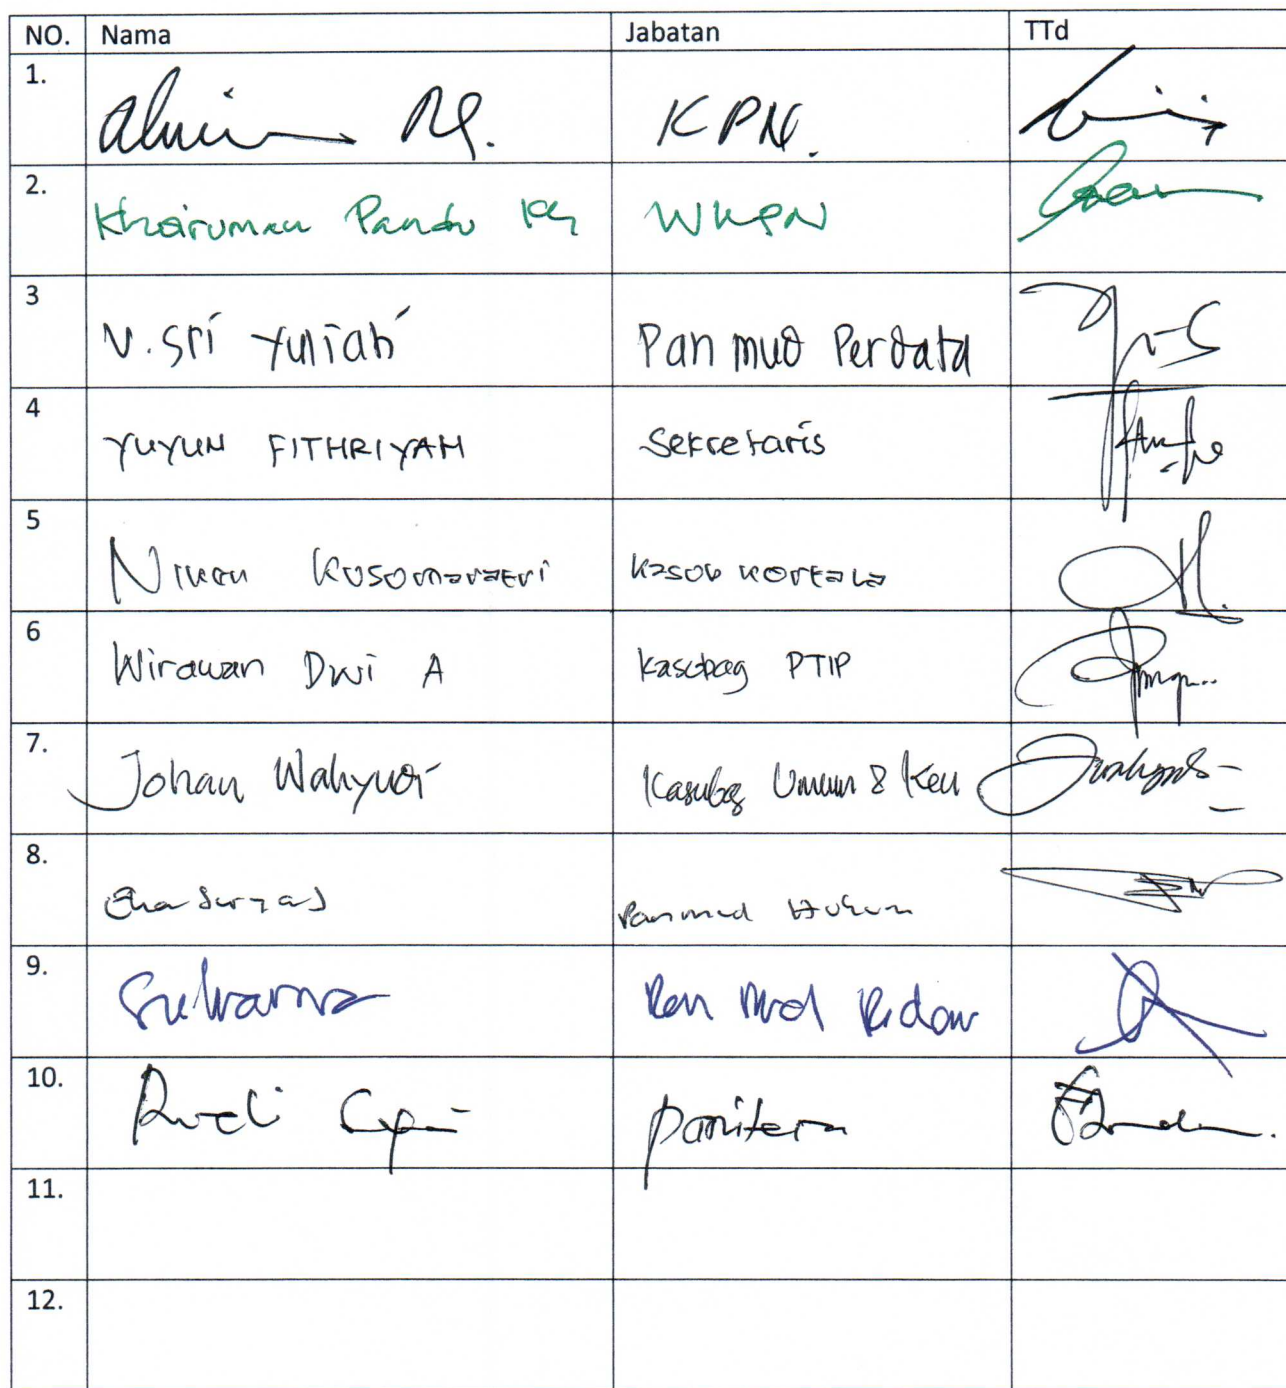 NO. Nama Jabatan TTd
1. R. KPN.
2. Khairuman Pandu WKPN
3 V. Sri Yuliati Panmud Perdata
4 YUYUN FITHRIYAH Sekretaris
5 Niken Kusomawatri Kasub Kortala
6 Wirawan Dwi A Kasubag PTIP
7. Johan Wahyudi Kasubag Umum & Keu
8. Panmud Hukum
9. Suwarna Pan Mud
10. Rudi Panitera
11.
12.